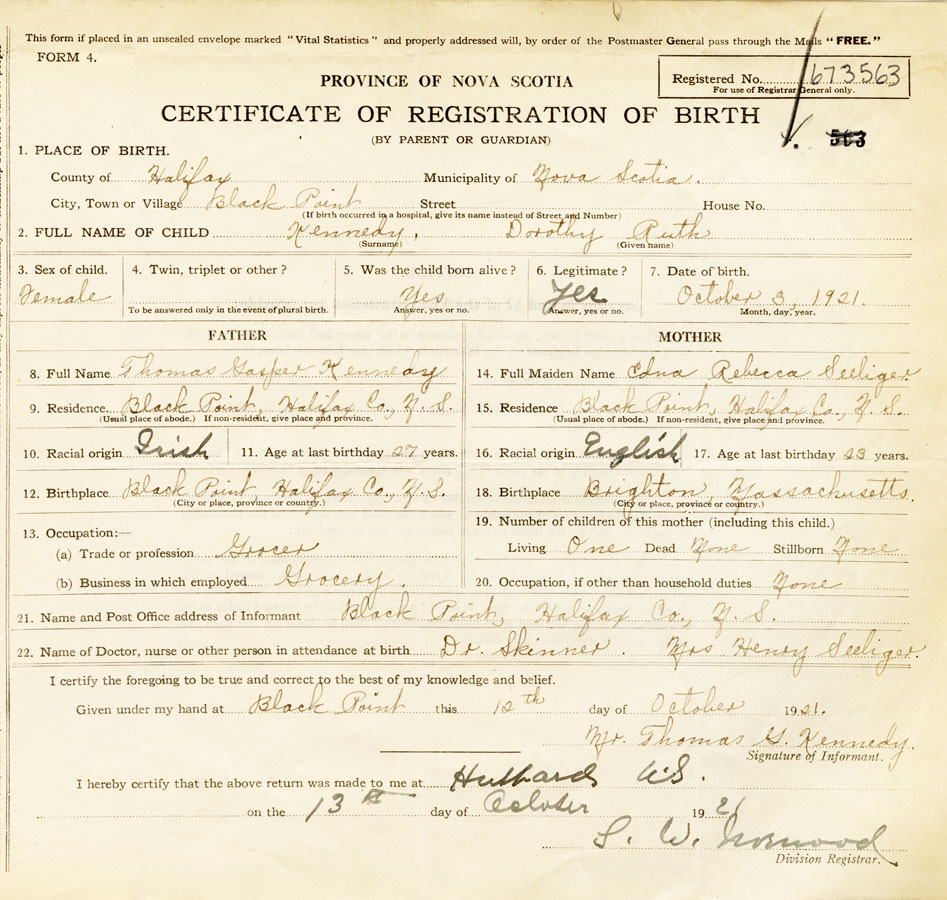 This form if placed in an unsealed envelope marked "Vital Statistics" and properly addressed will, by order of the Postmaster General pass through the Mails "FREE."
FORM 4.
PROVINCE OF NOVA SCOTIA
Registered No. 673563
For use of Registrar General only.
CERTIFICATE OF REGISTRATION OF BIRTH
(BY PARENT OR GUARDIAN)
563
1. PLACE OF BIRTH.
County of Halifax Municipality of Nova Scotia.
City, Town or Village Black Point Street House No.
(If birth occurred in a hospital, give its name instead of Street and Number)
2. FULL NAME OF CHILD Kennedy, Dorothy Ruth
(Surname) (Given name)
3. Sex of child. 4. Twin, triplet or other? 5. Was the child born alive? 6. Legitimate? 7. Date of birth.
Female Yes Yes October 3, 1921.
To be answered only in the event of plural birth. Answer, yes or no. Answer, yes or no. Month, day, year.
FATHER MOTHER
8. Full Name Thomas Gasper Kennedy 14. Full Maiden Name Edna Rebecca Seeliger.
9. Residence Black Point, Halifax Co., N. S. 15. Residence Black Point, Halifax Co., N. S.
(Usual place of abode.) If non-resident, give place and province. (Usual place of abode.) If non-resident, give place and province.
10. Racial origin Irish 11. Age at last birthday 27 years. 16. Racial origin English 17. Age at last birthday 23 years.
12. Birthplace Black Point, Halifax Co., N. S. 18. Birthplace Brighton, Massachusetts.
(City or place, province or country.) (City or place, province or country.)
13. Occupation:— 19. Number of children of this mother (including this child.)
(a) Trade or profession Grocer Living One Dead None Stillborn None
(b) Business in which employed Grocery. 20. Occupation, if other than household duties None
21. Name and Post Office address of Informant Black Point, Halifax Co., N. S.
22. Name of Doctor, nurse or other person in attendance at birth Dr. Skinner. Mrs Henry Seeliger.
I certify the foregoing to be true and correct to the best of my knowledge and belief.
Given under my hand at Black Point this 12th day of October 1921.
Mr. Thomas G. Kennedy.
Signature of Informant.
I hereby certify that the above return was made to me at Hubbards NS.
on the 13th day of October 1921
Division Registrar.